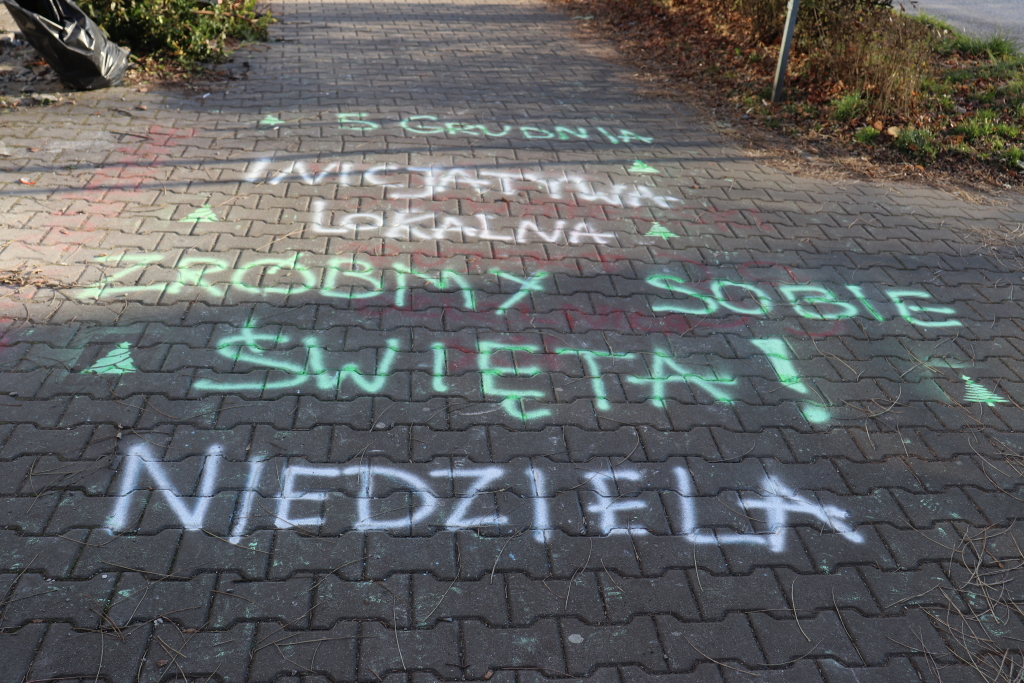 5 GRUDNIA
INICJATYWA
LOKALNA
ZRÓBMY SOBIE
ŚWIĘTA!
NIEDZIELA